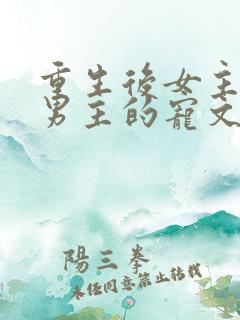 重生後女主
男主的寵文
陽三拳
未經同意禁止轉載